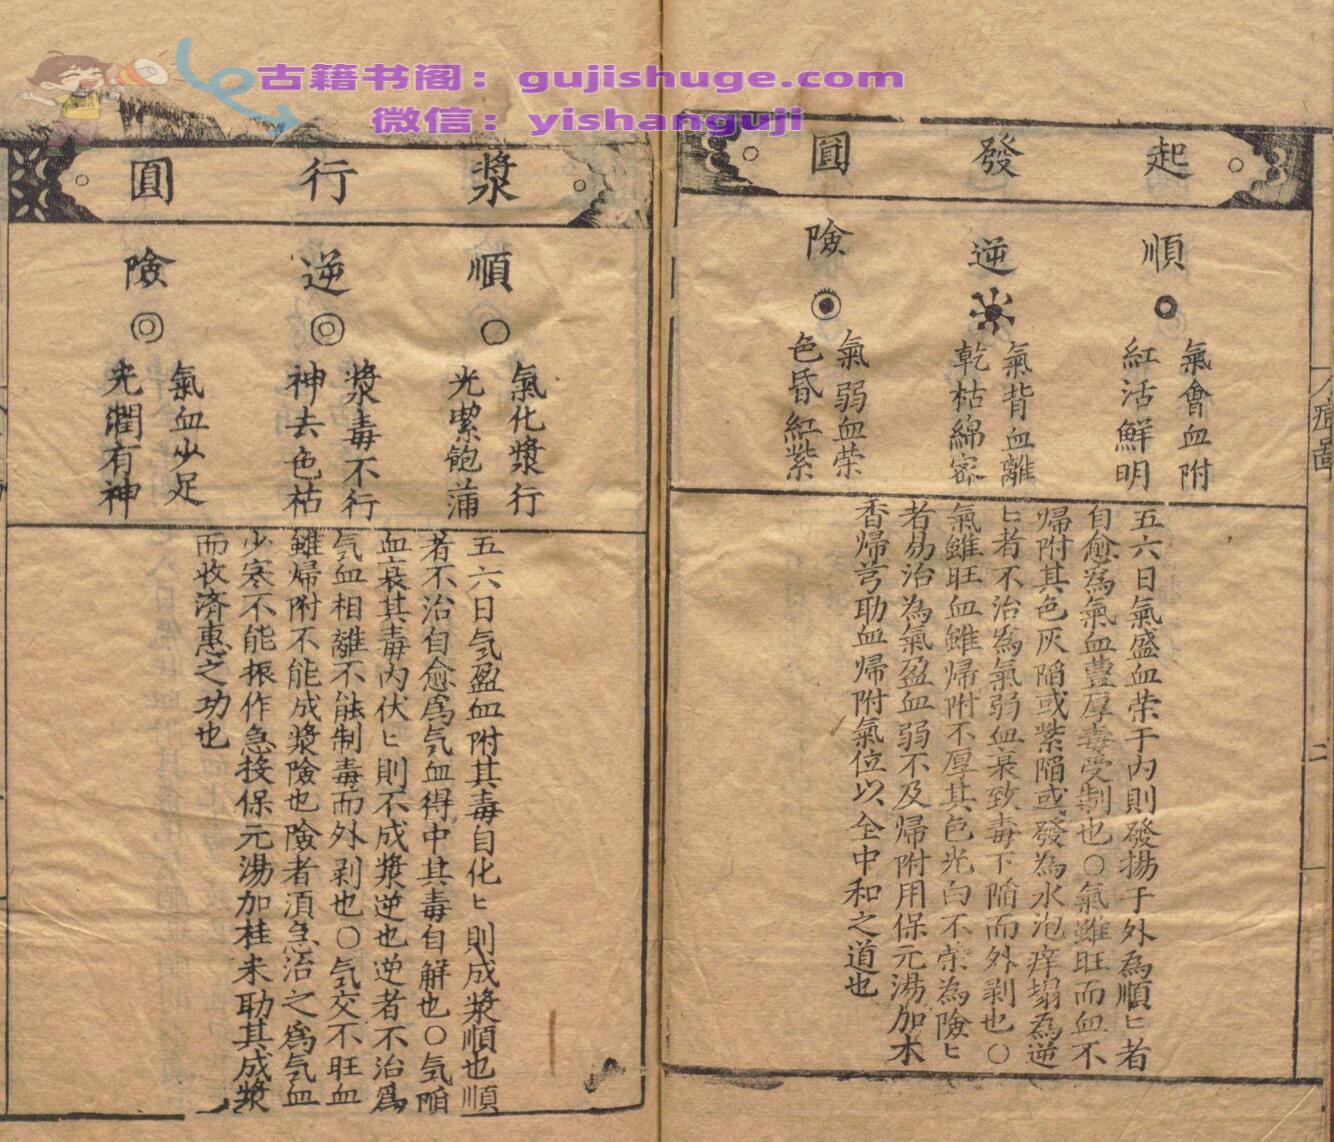 古籍书阁：gujishuge.com
微信：yishanguji
起發圓
順
氣會血附
紅活鮮明
逆
氣背血離
乾枯綿密
險
氣弱血荣
色昏紅紫
五六日氣盛血荣于内則發揚于外為順匕者
自愈爲氣血豊厚毒受制也○氣雖旺而血不
歸附其色灰陷或紫陷或發為水泡痒塌為逆
匕者不治爲氣弱血衰致毒下陷而外剥也○
氣雖旺血雖歸附不厚其色光白不荣為險匕
者易治為氣盈血弱不及歸附用保元湯加木
香歸芎助血歸附氣位以全中和之道也
二
漿行圓
順
氣化漿行
光潔飽蒲
逆
漿毒不行
神去色枯
險
氣血少足
光潤有神
五六日気盈血附其毒自化匕則成漿順也順
者不治自愈爲気血得中其毒自解也○気陷
血衰其毒内伏匕則不成漿逆也逆者不治爲
気血相離不能制毒而外剥也○気交不旺血
雖歸附不能成漿險也險者湏急治之爲気血
少寒不能振作急投保元湯加桂未助其成漿
而收濟惠之功也